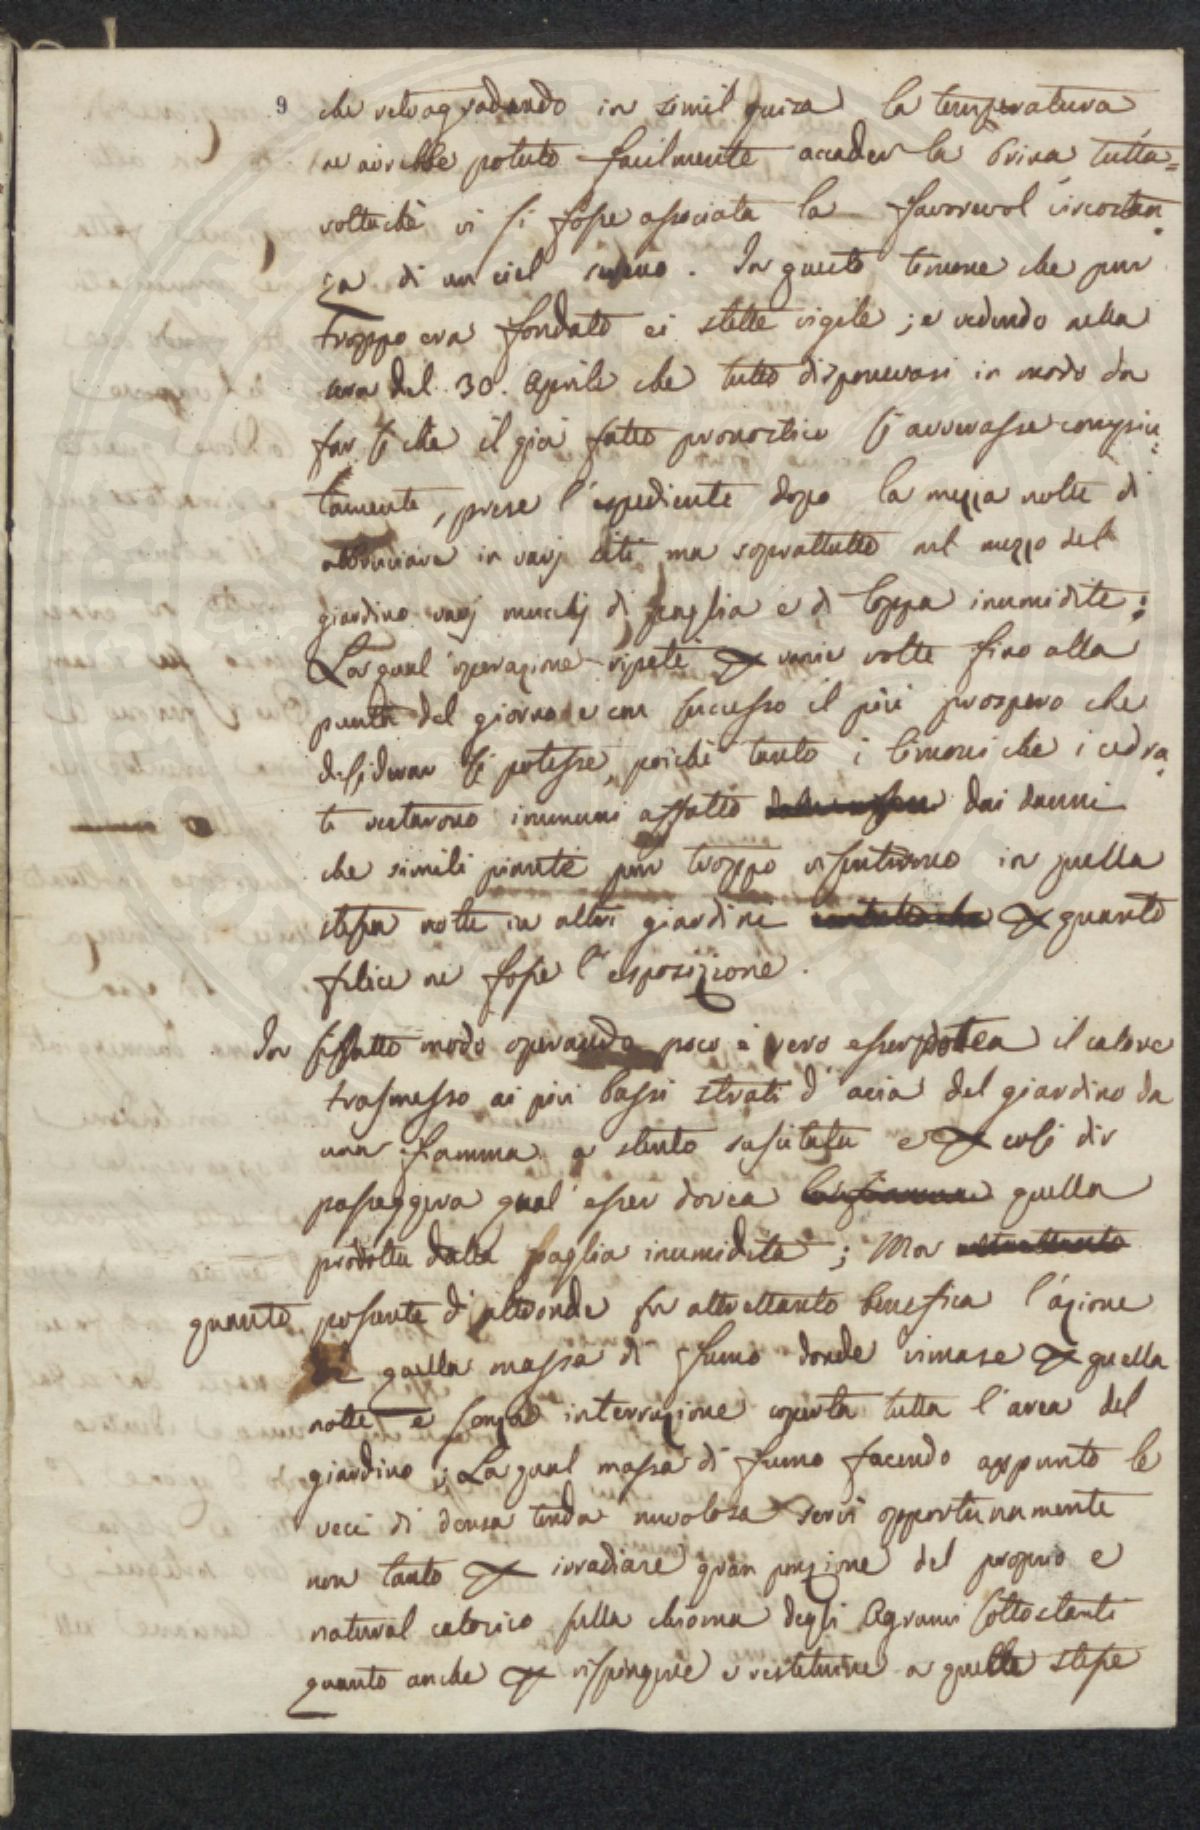 9 che retrogradando in simil guisa la temperatura
ne avrebbe potuto facilmente accader la brina tutta=
voltachè vi si fosse associata la favorevol circostan
za di un ciel sereno. In questo timore che pur
troppo era fondato ei stette vigile; e vedendo nella
sera del 30. Aprile che tutto disponevasi in modo da
far sì che il già fatto pronostico si avverasse compiu=
tamente, prese l'espediente dopo la mezza notte di
abbruciare in varj siti ma soprattutto nel mezzo del
giardino varj mucchj di paglia e di loppa inumidite:
La qual operazione ripetè varie volte fino alla
punta del giorno e con successo il più prospero che
desiderar si potesse, poichè tanto i limoni che i cedra
ti restarono immuni affatto dai danni
che simili piante pur troppo risentirono in quella
stessa notte in altri giardini quanto
felice ne fosse l'esposizione.
In siffatto modo operando poco è vero esser potea il calore
trasmesso ai più bassi strati d'aria del giardino da
una fiamma a stento suscitata e così
passeggera qual esser dovea quella
prodotta dalla paglia inumidita; Ma
quanto possente d'altronde fu altrettanto benefica l'azione
quella massa di fumo donde rimase quella
notte e senza interruzione coperta tutta l'area del
giardino; La qual massa di fumo facendo appunto le
veci di densa tenda nuvolosa servì opportunamente
non tanto irradiare gran porzione del proprio e
natural calorico sulla chioma degli Agrumi sottostanti
quanto anche rispingere e restituire a quelle stesse